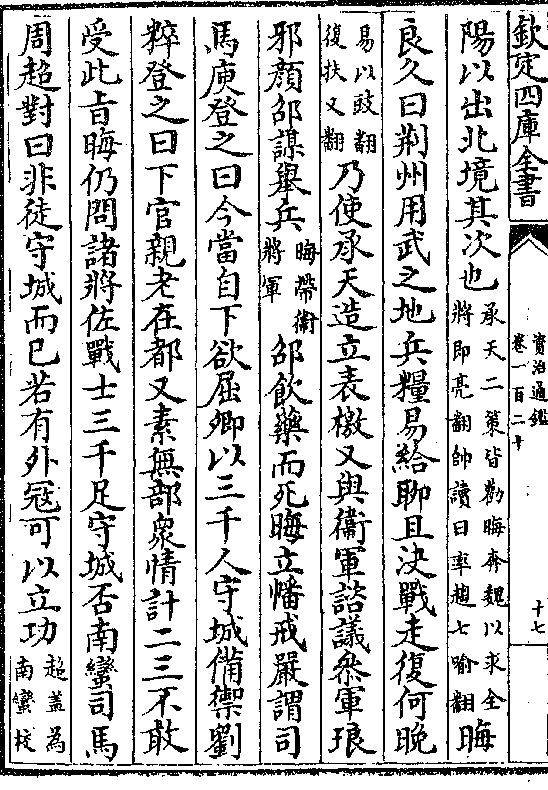 欽定四庫全書
資治通鑑
卷一百二十
十七
陽以出北境其次也承天二策皆勸晦奔魏以求全將即亮翻帥讀曰率趣七喻翻晦
良久曰荆州用武之地兵糧易給聊且決戰走復何晚
易以豉翻復扶又翻乃使承天造立表檄又與衞軍諮議叅軍琅
邪顔邵謀舉兵晦帶衞將軍邵飲藥而死晦立幡戒嚴謂司
馬庾登之曰今當自下欲屈卿以三千人守城備禦劉
粹登之曰下官親老在都又素無部衆情計二三不敢
受此㫖晦仍問諸將佐戰士三千足守城否南蠻司馬
周超對曰非徒守城而已若有外冦可以立功超蓋為南蠻校